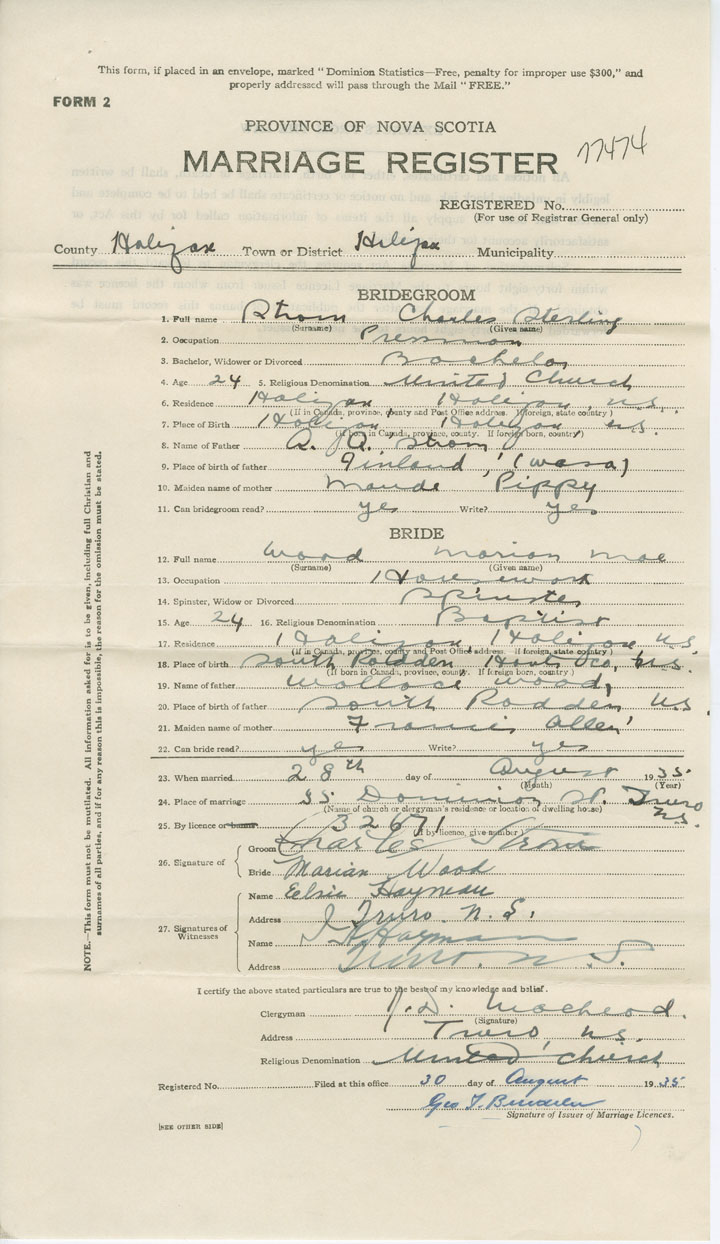 This form, if placed in an envelope, marked "Dominion Statistics—Free, penalty for improper use $300," and
properly addressed will pass through the Mail "FREE."
FORM 2
PROVINCE OF NOVA SCOTIA
MARRIAGE REGISTER 77474
REGISTERED No.
(For use of Registrar General only)
County Halifax Town or District Halifax Municipality
BRIDEGROOM
1. Full name Strom Charles Sterling
(Surname) (Given name)
2. Occupation Pressman
3. Bachelor, Widower or Divorced Bachelor
4. Age 24 5. Religious Denomination United Church
6. Residence Halifax Halifax, N.S.
(If in Canada, province, county and Post Office address. If foreign, state country)
7. Place of Birth Halifax Halifax N.S.
(If born in Canada, province, county. If foreign born, country)
8. Name of Father A. Strom
9. Place of birth of father Finland, (Wasa)
10. Maiden name of mother Maude Pippy
11. Can bridegroom read? yes Write? yes
BRIDE
12. Full name Wood Marion Mae
(Surname) (Given name)
13. Occupation Housework
14. Spinster, Widow or Divorced Spinster
15. Age 24 16. Religious Denomination Baptist
17. Residence Halifax Halifax N.S.
(If in Canada, province, county and Post Office address. If foreign, state country)
18. Place of birth South Rawdon Hants Co, N.S.
(If born in Canada, province, county. If foreign born, country)
19. Name of father Wallace Wood,
20. Place of birth of father South Rawdon N.S.
21. Maiden name of mother Francis Allen
22. Can bride read? yes Write? yes
23. When married 28th day of August 1935
(Month) (Year)
24. Place of marriage 35 Dominion St. Truro
(Name of church or clergyman's residence or location of dwelling house) N.S.
25. By licence or banns (32671)
(If by licence, give number)
26. Signature of
Groom Charles Strom
Bride Marian Wood
27. Signatures of Witnesses
Name Elsie Hayman
Address Truro N.S.
Name Hayman
Address Truro, N.S.
I certify the above stated particulars are true to the best of my knowledge and belief.
Clergyman J. D. MacLeod.
(Signature)
Address Truro, N.S.
Religious Denomination United Church
Registered No. Filed at this office 30 day of August 1935
Geo
Signature of Issuer of Marriage Licences.
[SEE OTHER SIDE]
NOTE.—This form must not be mutilated. All information asked for is to be given, including full Christian and
surnames of all parties, and if for any reason this is impossible, the reason for the omission must be stated.